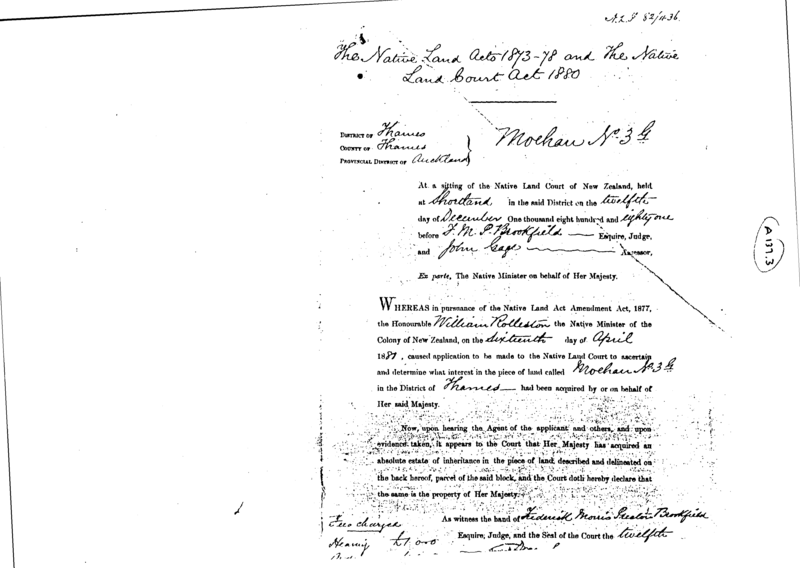 N.L.P 82/436.
The Native Land Acts 1873-78 and The Native
Land Court Act 1880
DISTRICT OF Thames
COUNTY OF Thames
PROVINCIAL DISTRICT OF Auckland
Moehau No. 3 G
At a sitting of the Native Land Court of New Zealand, held
at Shortland in the said District on the twelfth
day of December One thousand eight hundred and eighty one
before F. M. P. Brookfield Esquire, Judge,
and John Assessor,
A 137.3
Ex parte, The Native Minister on behalf of Her Majesty.
WHEREAS in pursuance of the Native Land Act Amendment Act, 1877,
the Honourable William Rolleston the Native Minister of the
Colony of New Zealand, on the sixteenth day of April
1881, caused application to be made to the Native Land Court to ascertain
and determine what interest in the piece of land called Moehau No. 3 G
in the District of Thames had been acquired by or on behalf of
Her said Majesty.
Now, upon hearing the Agent of the applicant and others, and upon
evidence taken, it appears to the Court that Her Majesty has acquired an
absolute estate of inheritance in the piece of land described and delineated on
the back hereof, parcel of the said block, and the Court doth hereby declare that
the same is the property of Her Majesty.
As witness the hand of Frederick Morris Preston Brookfield
Esquire, Judge, and the Seal of the Court the twelfth
Fees charged
Hearing £1.0.0